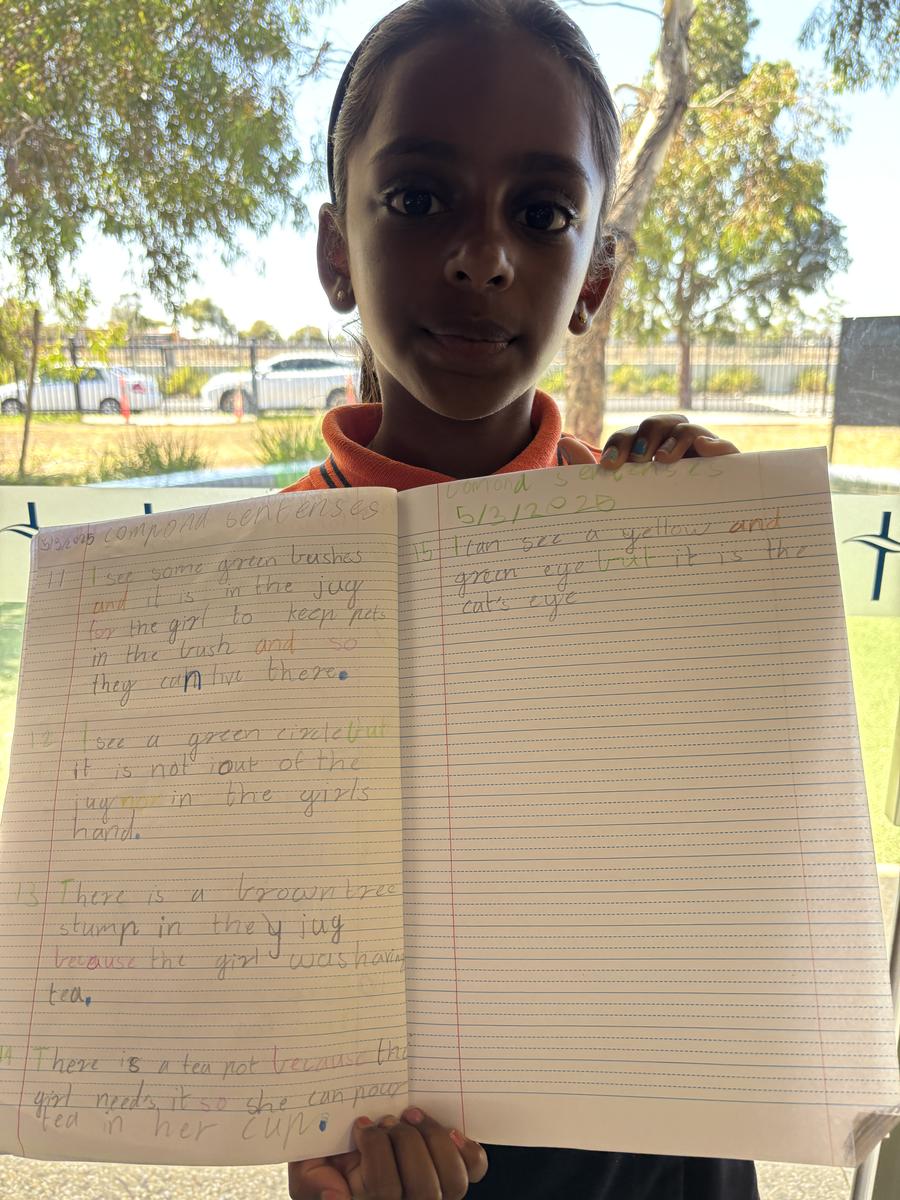 5/3/2025 compond sentenses
11 I see some green bushes
and it is in the jug
for the girl to keep pets
in the bush and so
they can live there.
12 I see a green circle but
it is not iout of the
jug nor in the girls
hand.
13 There is a brown tree
stump in they jug
because the girl was having
tea.
14 There is a tea pot because the
girl needs it so she can pour
tea in her cup.
comond sentenses
5/3/2025
15 I can see a yellow and
green eye but it is the
cat's eye